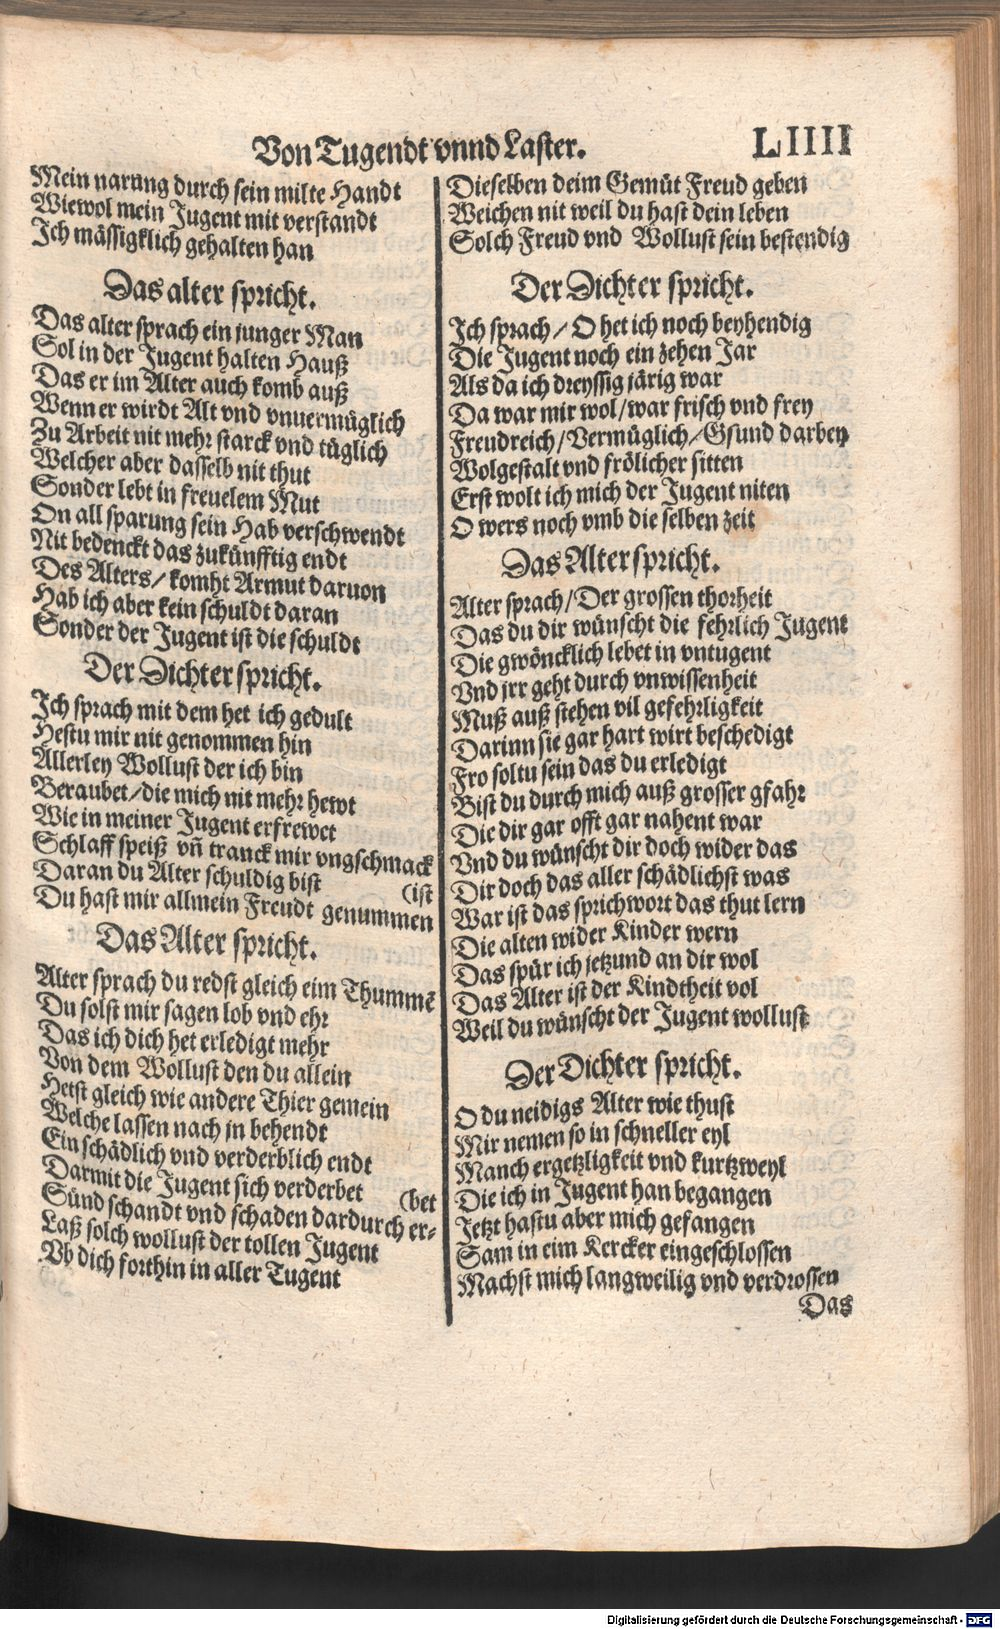 Von Tugendt vnnd Laster.
LIIII
Mein narung durch sein milte Handt
Wiewol mein Jugent mit verstandt
Ich mässigklich gehalten han
Das alter spricht.
Das alter sprach ein junger Man
Sol in der Jugent halten Hauß
Das er im Alter auch komb auß
Wenn er wirdt Alt vnd vnuermüglich
Zu Arbeit nit mehr starck vnd tüglich
Welcher aber dasselb nit thut
Sonder lebt in freuelem Mut
On all sparung sein Hab verschwendt
Nit bedenckt das zukünfftig endt
Des Alters/ komht Armut daruon
Hab ich aber kein schuldt daran
Sonder der Jugent ist die schuldt
Der Dichter spricht.
Ich sprach mit dem het ich gedult
Hestu mir nit genommen hin
Allerley Wollust der ich bin
Beraubet/die mich nit mehr hewt
Wie in meiner Jugent erfrewet
Schlaff speiß vñ tranck mir vngschmack
Daran du Alter schuldig bist (ist
Du hast mir allmein Freudt genummen
Das Alter spricht.
Alter sprach du redst gleich eim Thummē
Du solst mir sagen lob vnd ehr
Das ich dich het erledigt mehr
Von dem Wollust den du allein
Hetst gleich wie andere Thier gemein
Welche lassen nach in behendt
Ein schädlich vnd verderblich endt
Darmit die Jugent sich verderbet (bet
Sünd schandt vnd schaden dardurch er-
Laß solch wollust der tollen Jugent
Vb dich forthin in aller Tugent
Dieselben deim Gemüt Freud geben
Weichen nit weil du hast dein leben
Solch Freud vnd Wollust sein bestendig
Der Dichter spricht.
Ich sprach/ O het ich noch beyhendig
Die Jugent noch ein zehen Jar
Als da ich dreyssig järig war
Da war mir wol/war frisch vnd frey
Freudreich/Vermüglich/Gsund darbey
Wolgestalt vnd frölicher sitten
Erst wolt ich mich der Jugent niten
O wers noch vmb die selben zeit
Das Alter spricht.
Alter sprach/Der grossen thorheit
Das du dir wünscht die fehrlich Jugent
Die gwöncklich lebet in vntugent
Vnd jrr geht durch vnwissenheit
Muß auß stehen vil gefehrligkeit
Darinn sie gar hart wirt beschedigt
Fro soltu sein das du erledigt
Bist du durch mich auß grosser gfahr
Die dir gar offt gar nahent war
Vnd du wünscht dir doch wider das
Dir doch das aller schädlichst was
War ist das sprichwort das thut lern
Die alten wider Kinder wern
Das spür ich jetzund an dir wol
Das Alter ist der Kindtheit vol
Weil du wünscht der Jugent wollust
Der Dichter spricht.
O du neidigs Alter wie thust
Mir nemen so in schneller eyl
Manch ergetzligkeit vnd kurtzweyl
Die ich in Jugent han begangen
Jetzt hastu aber mich gefangen
Sam in eim Kercker eingeschlossen
Machst mich langweilig vnd verdrossen
Das
Digitalisierung gefördert durch die Deutsche Forschungsgemeinschaft - DFG